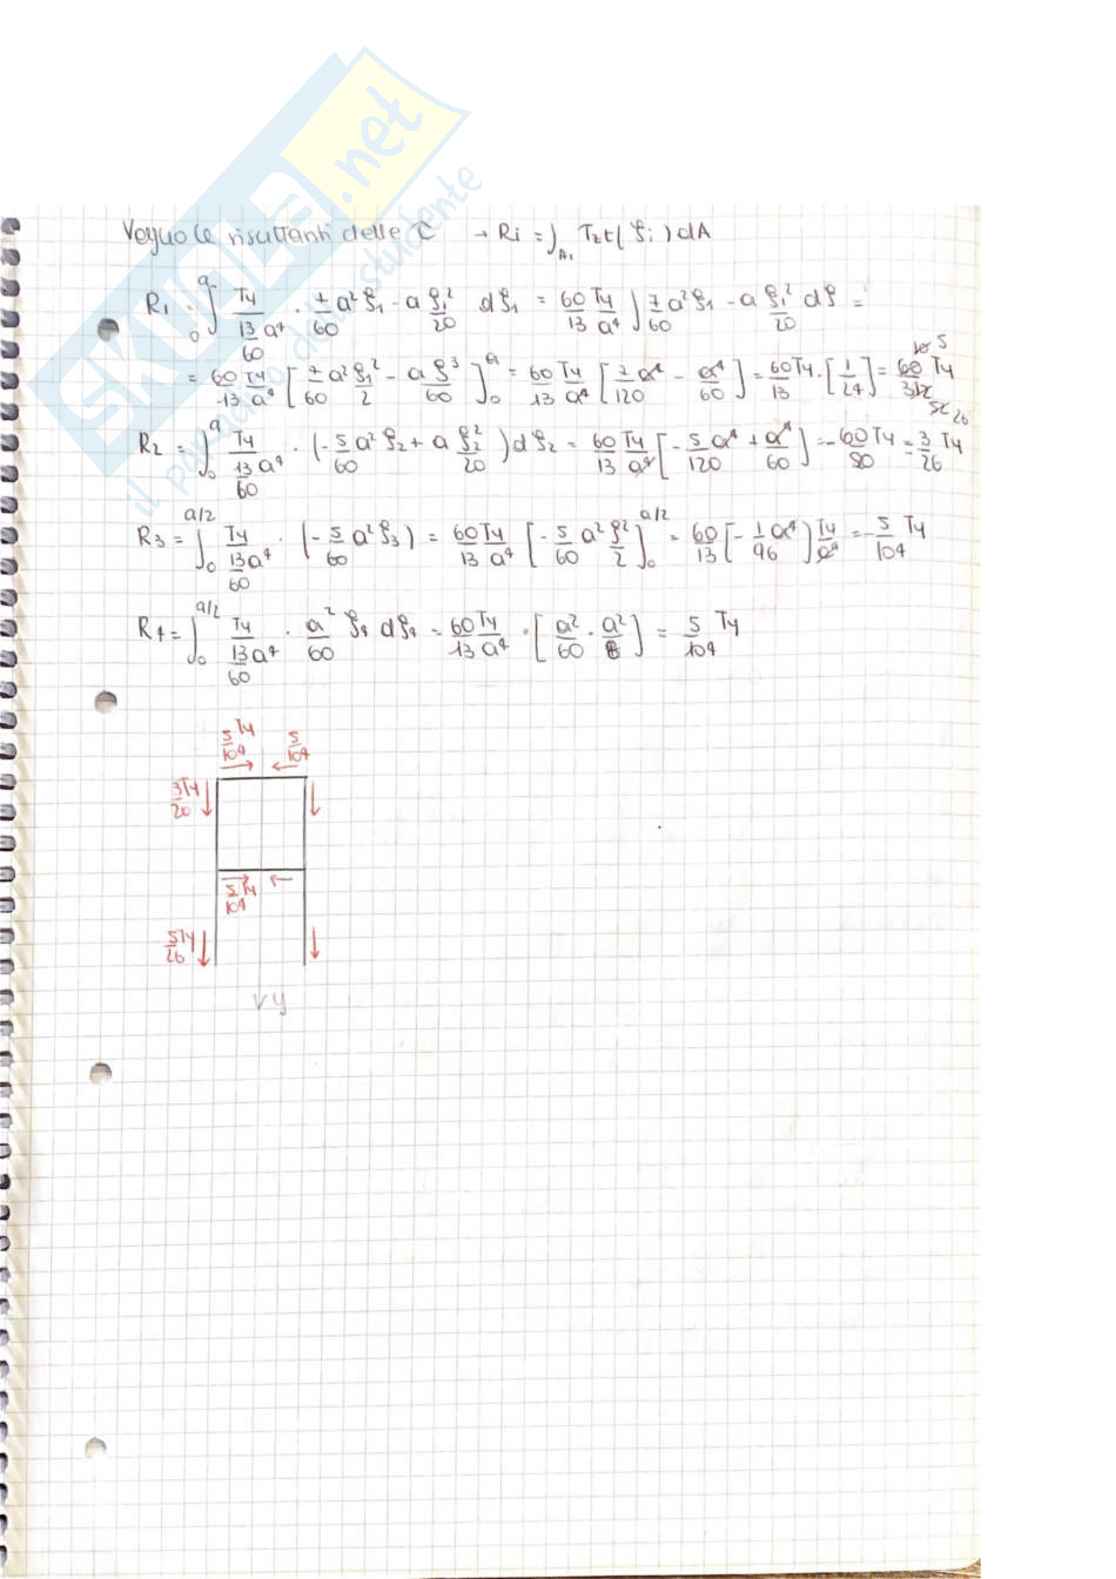 SKUOLA.net
il paradiso dello studente
Veguo le risultanti delle τ → Ri = ∫A₁ Tzt(ξi) dA
R₁ = ∫₀ᵃ Ty/(13/60 a⁴) · 7/60 a² ξ₁ - a ξ₁²/20 dξ₁ = 60/13 Ty/a⁴ ∫ 7/60 a² ξ₁ - a ξ₁²/20 dξ =
= 60/13 Ty/a⁴ [7/60 a² ξ₁²/2 - a ξ³/60]₀ᵃ = 60/13 Ty/a⁴ [7/120 a⁴ - a⁴/60] = 60/13 Ty · [1/24] = 5/26 Ty
R₂ = ∫₀ᵃ Ty/(13/60 a⁴) · (-5/60 a² ξ₂ + a ξ₂²/20) dξ₂ = 60/13 Ty/a⁴ [-5/120 a⁴ + a⁴/60] = -60/80 Ty = 3/26 Ty
R₃ = ∫₀^a/2 Ty/(13/60 a⁴) · (-5/60 a² ξ₃) = 60/13 Ty/a⁴ [-5/60 a² ξ²/2]₀^a/2 = 60/13 [-1/96 a⁴] Ty/a⁴ = -5/104 Ty
R₄ = ∫₀^a/2 Ty/(13/60 a⁴) · a²/60 ξ₄ dξ₄ = 60/13 Ty/a⁴ · [a²/60 · a²/8] = 5/104 Ty
5/104 Ty 5/104
3Ty/20
5/104 Ty
5Ty/26
Vy